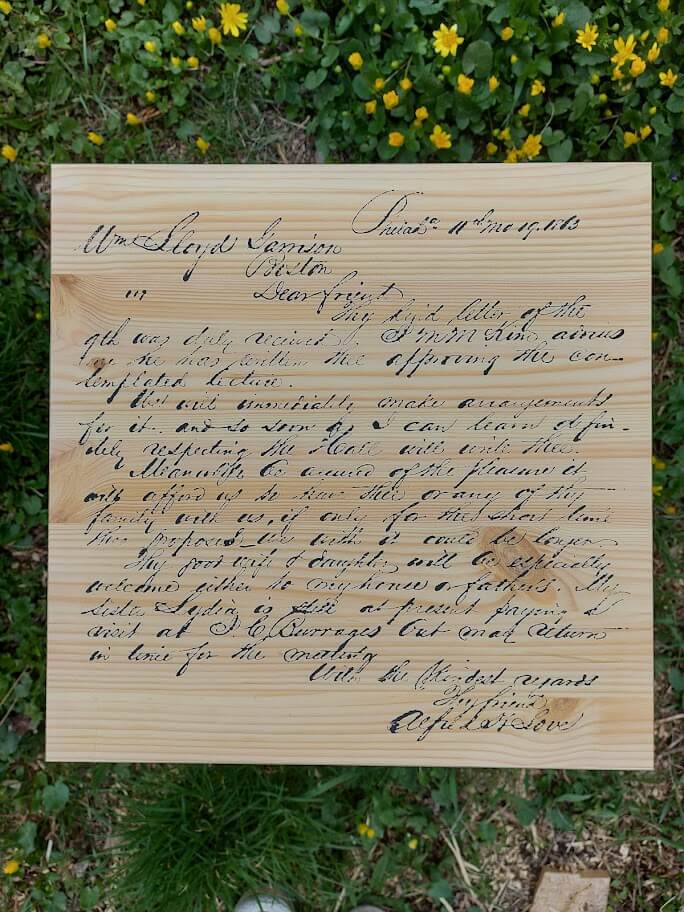 Philada 11th mo 19. 1863
Wm Lloyd Garrison
Boston
Dear friend
Thy kind letter of the
9th was duly received. J M M Kim
me he has written thee approving the con-
templated lecture.
We will immediately make arrangements
for it.. and so soon as I can learn defin-
itely respecting the Hall will write thee.
Meanwhile be assured of the pleasure it
will afford us to have thee or any of thy
family with us, if only for the short time
thou proposes we wish it could be longer
Thy good wife & daughter will be especially
welcome either to my house or father's. My
sister Lydia is still at present paying a
visit at J. C. Burrages but may return
in time for the meeting
With the kindest regards
Thy friend
Alfred H Love